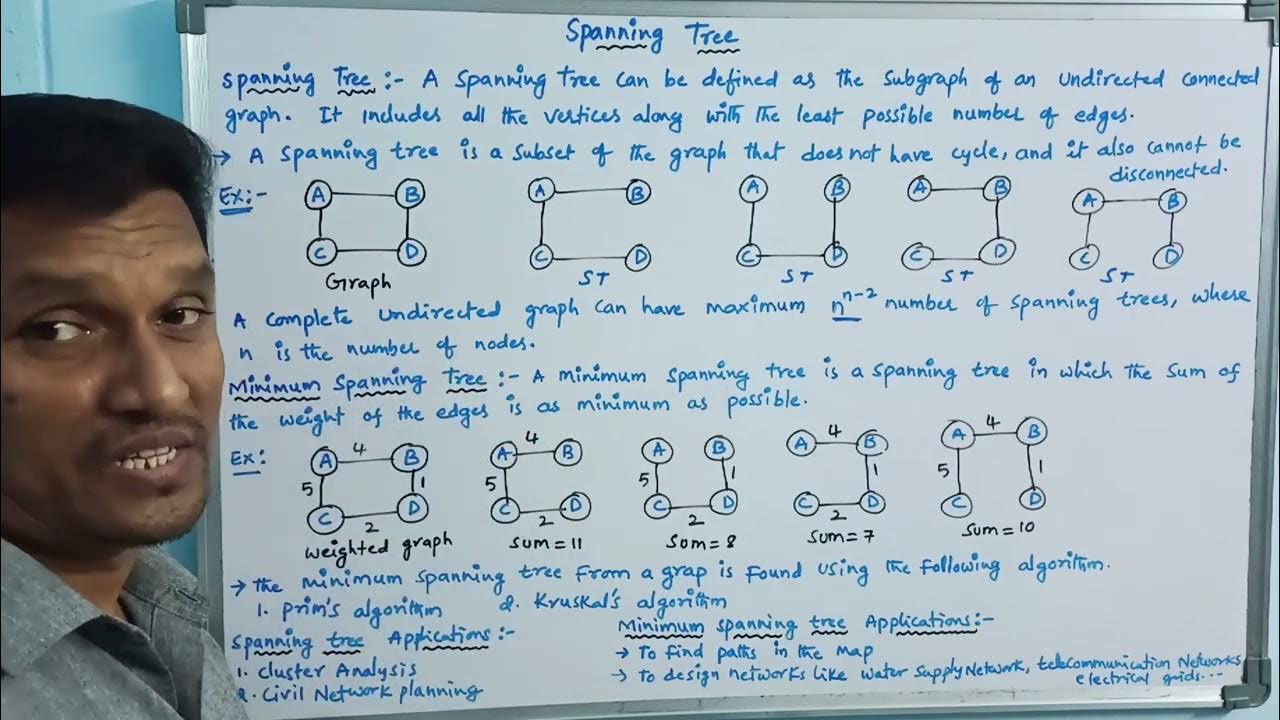 Spanning Tree
Spanning Tree :- A Spanning tree can be defined as the subgraph of an undirected connected
graph. It includes all the vertices along with the least possible number of edges.
→ A spanning tree is a subset of the graph that does not have cycle, and it also cannot be
disconnected.
Ex:-
A B A B A B A B A B
C D C D C D C D C D
Graph ST ST ST ST
A complete undirected graph can have maximum n^n-2 number of spanning trees, where
n is the number of nodes.
Minimum Spanning Tree :- A minimum spanning tree is a spanning tree in which the sum of
the weight of the edges is as minimum as possible.
Ex:
4 4 4 4
A B A B A B A B A B
5 1 5 5 1 1 5 1
C D C D C D C D C D
2 2 2 2
weighted graph Sum = 11 Sum = 8 Sum = 7 Sum = 10
→ the minimum spanning tree from a grap is found using the following algorithm.
1. prim's algorithm 2. Kruskal's algorithm
Spanning tree Applications :- Minimum spanning tree Applications:-
1. Cluster Analysis → To find paths in the map
2. Civil Network planning → To design networks like water supply Network, telecommunication Networks
electrical grids...